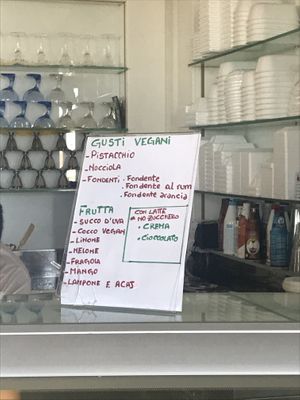 GUSTI VEGANI
- PISTACCHIO
- NOCCIOLA
- FONDENTI . Fondente
. Fondente al rum
. Fondente arancia
FRUTTA
- SUCCO D'UVA
- COCCO VEGAN
- LIMONE
- MELONE
- FRAGOLA
- MANGO
- LAMPONE E ACAJ
CON LATTE
NO ZUCCHERO
. CREMA
. CIOCCOLATO